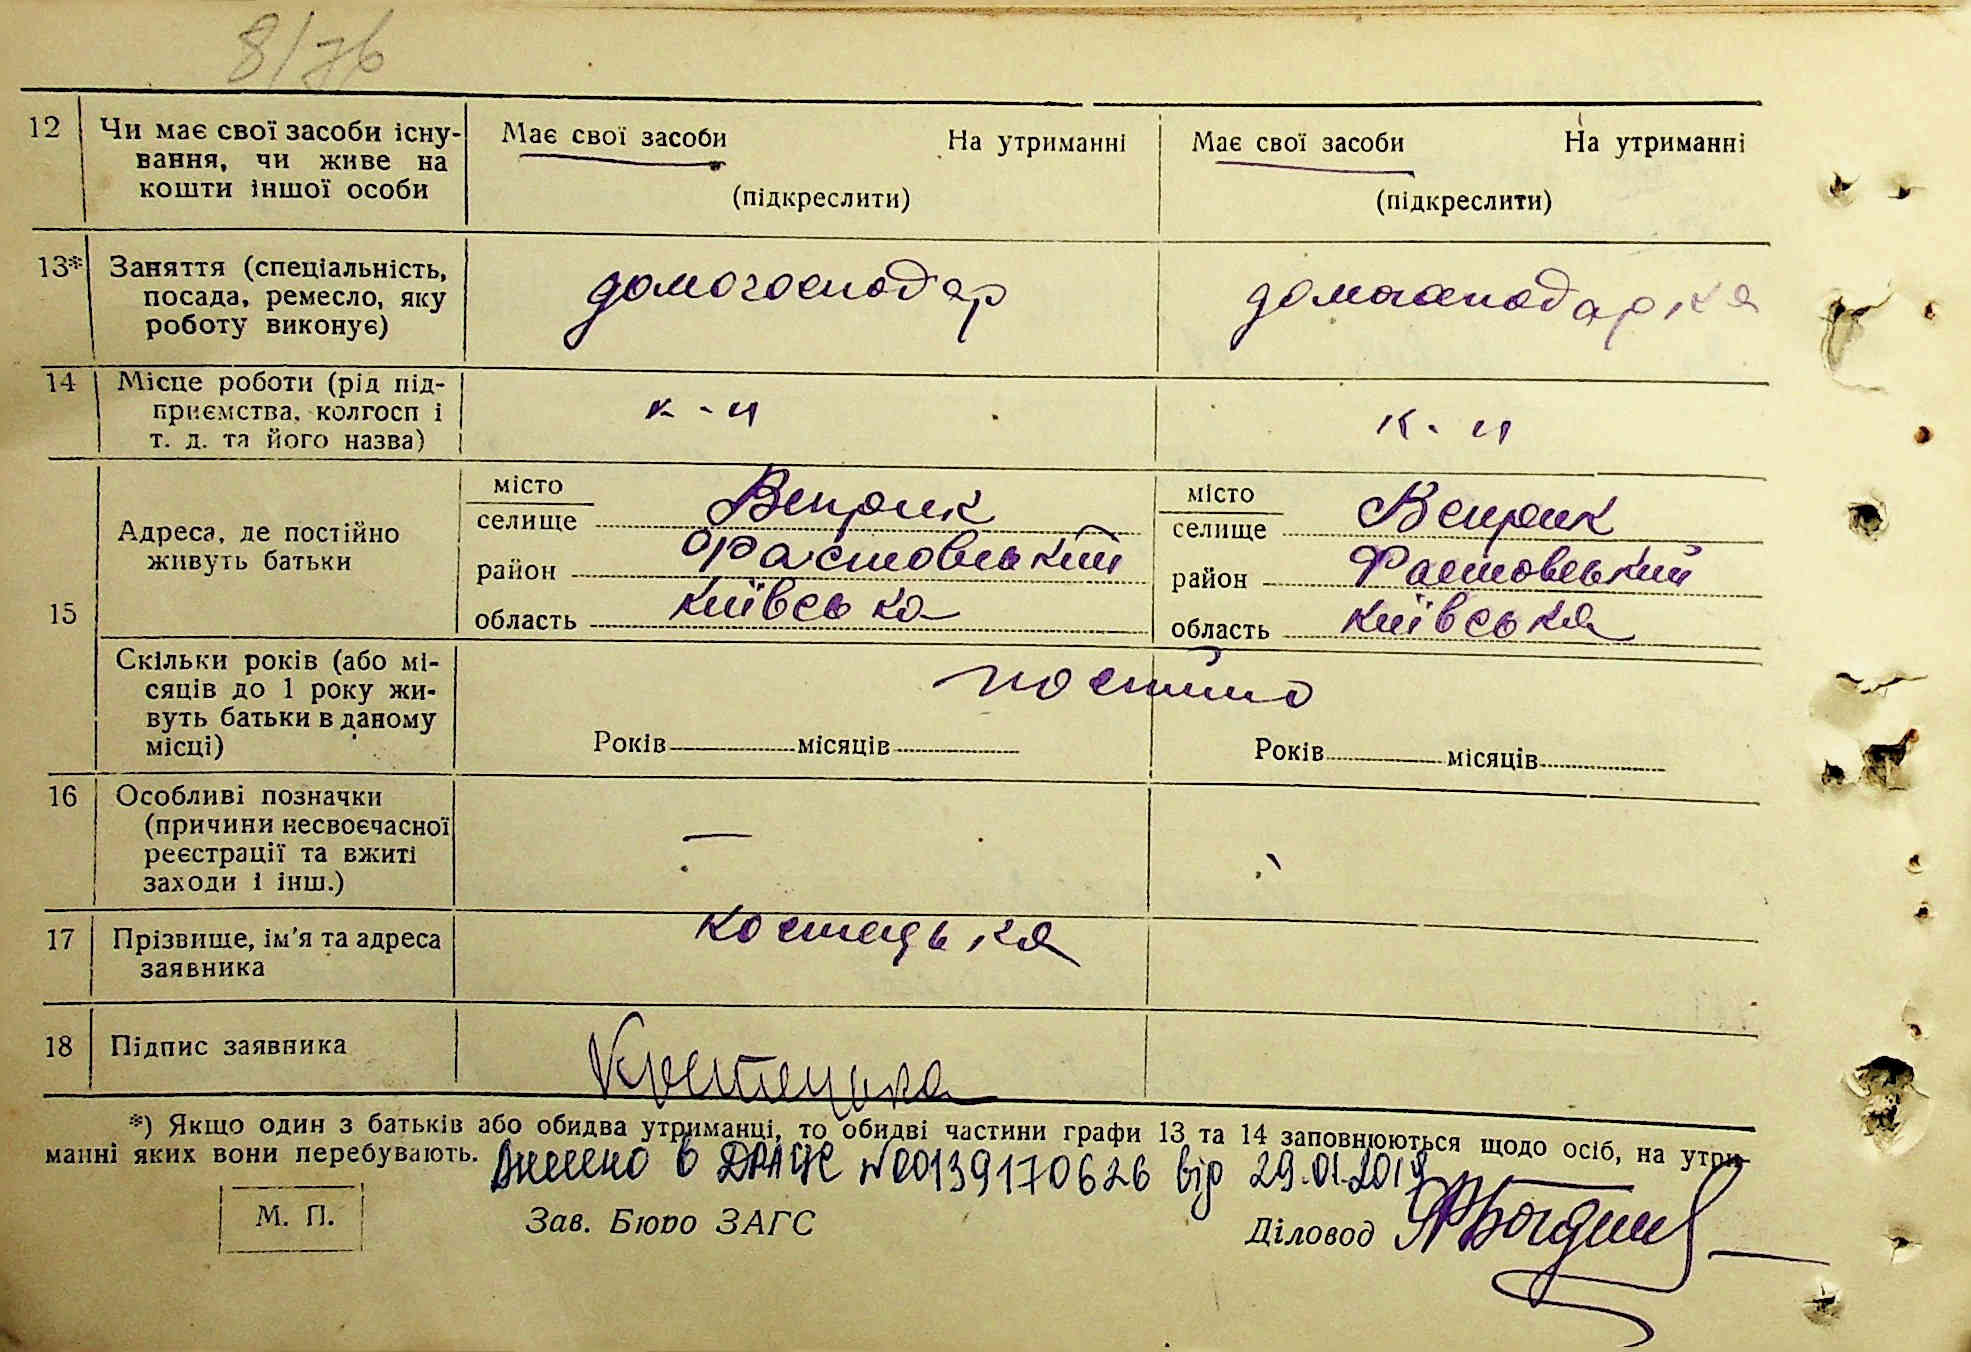 8/76
12 Чи має свої засоби існу- Має свої засоби На утриманні Має свої засоби На утриманні
вання, чи живе на
кошти іншої особи (підкреслити) (підкреслити)
13* Заняття (спеціальність, домогосподар домогосподарка
посада, ремесло, яку
роботу виконує)
14 Місце роботи (рід під- к-п к-п
приємства, колгосп і
т. д. та його назва)
15 Адреса, де постійно живуть батьки
місто
селище Веприк Веприк
район Фастовський Фастовський
область київська київська
Скільки років (або мі- постійно
сяців до 1 року жи-
вуть батьки в даному
місці) Років місяців Років місяців
16 Особливі позначки —
(причини несвоєчасної
реєстрації та вжиті
заходи і інш.)
17 Прізвище, ім'я та адреса Костецька
заявника
18 Підпис заявника Костецька
*) Якщо один з батьків або обидва утриманці, то обидві частини графи 13 та 14 заповнюються щодо осіб, на утри-
манні яких вони перебувають. Внесено в ДРАЦС №00139170626 від 29.01.2019
М. П. Зав. Бюро ЗАГС Діловод